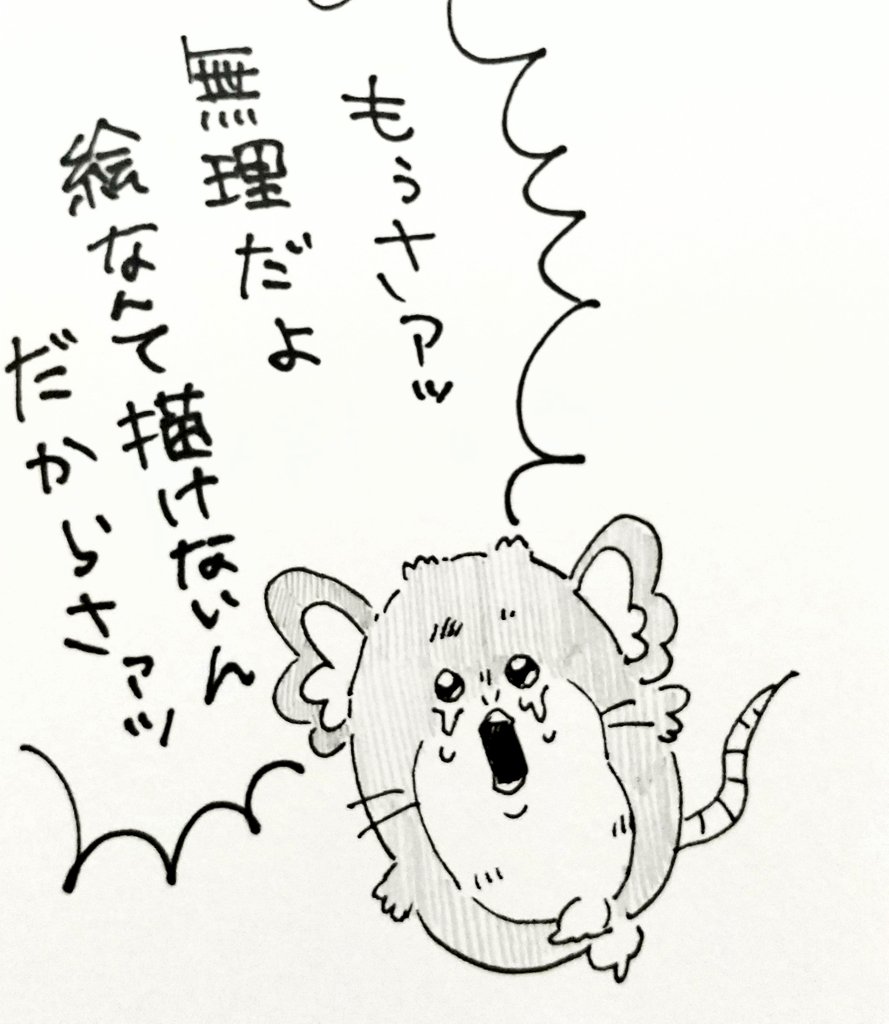 もうさァッ
無理だよ
絵なんて描けないん
だからさァッ